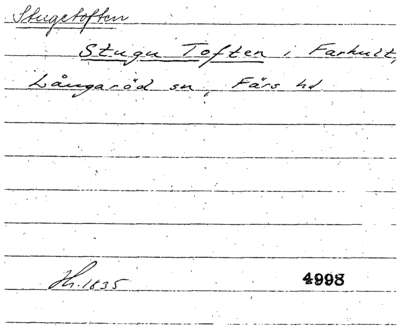 Stugetoften
Stugu Toften i Farhult,
Långaröd sn, Färs hd
Hr. 1635 4998